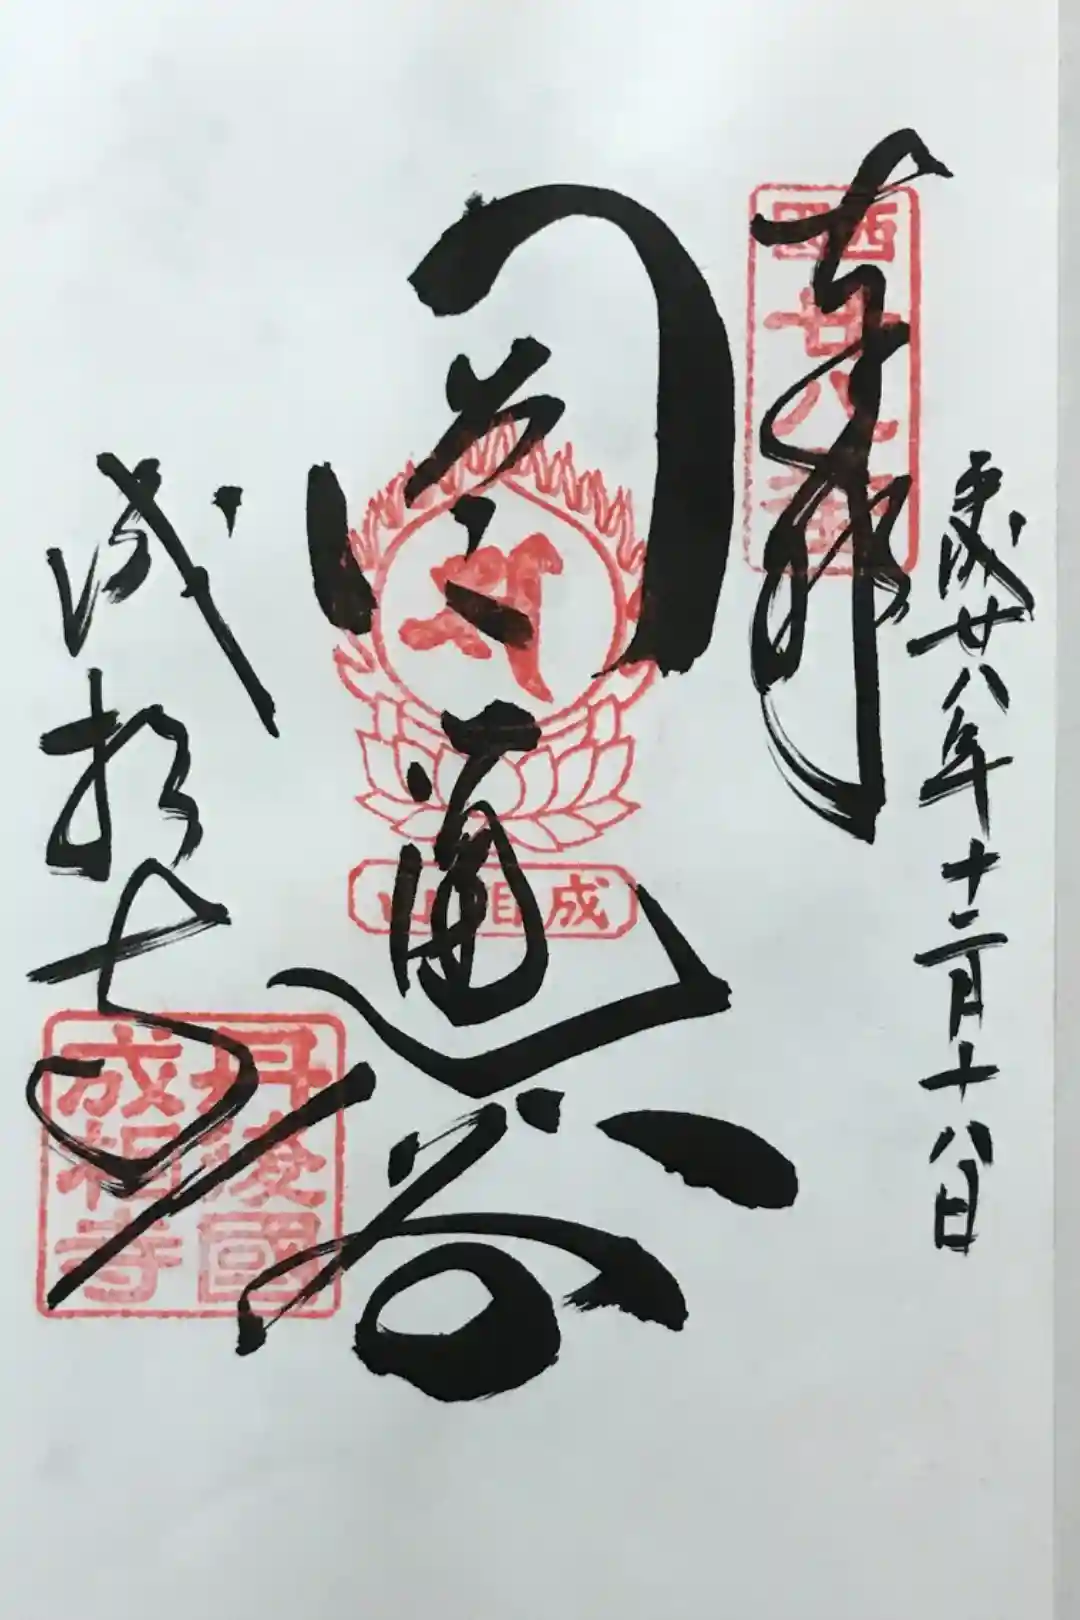 平成廿八年十二月十八日
奉拝
西国
廿八番
圓通閣
成相山
成相寺
丹後國
成相寺